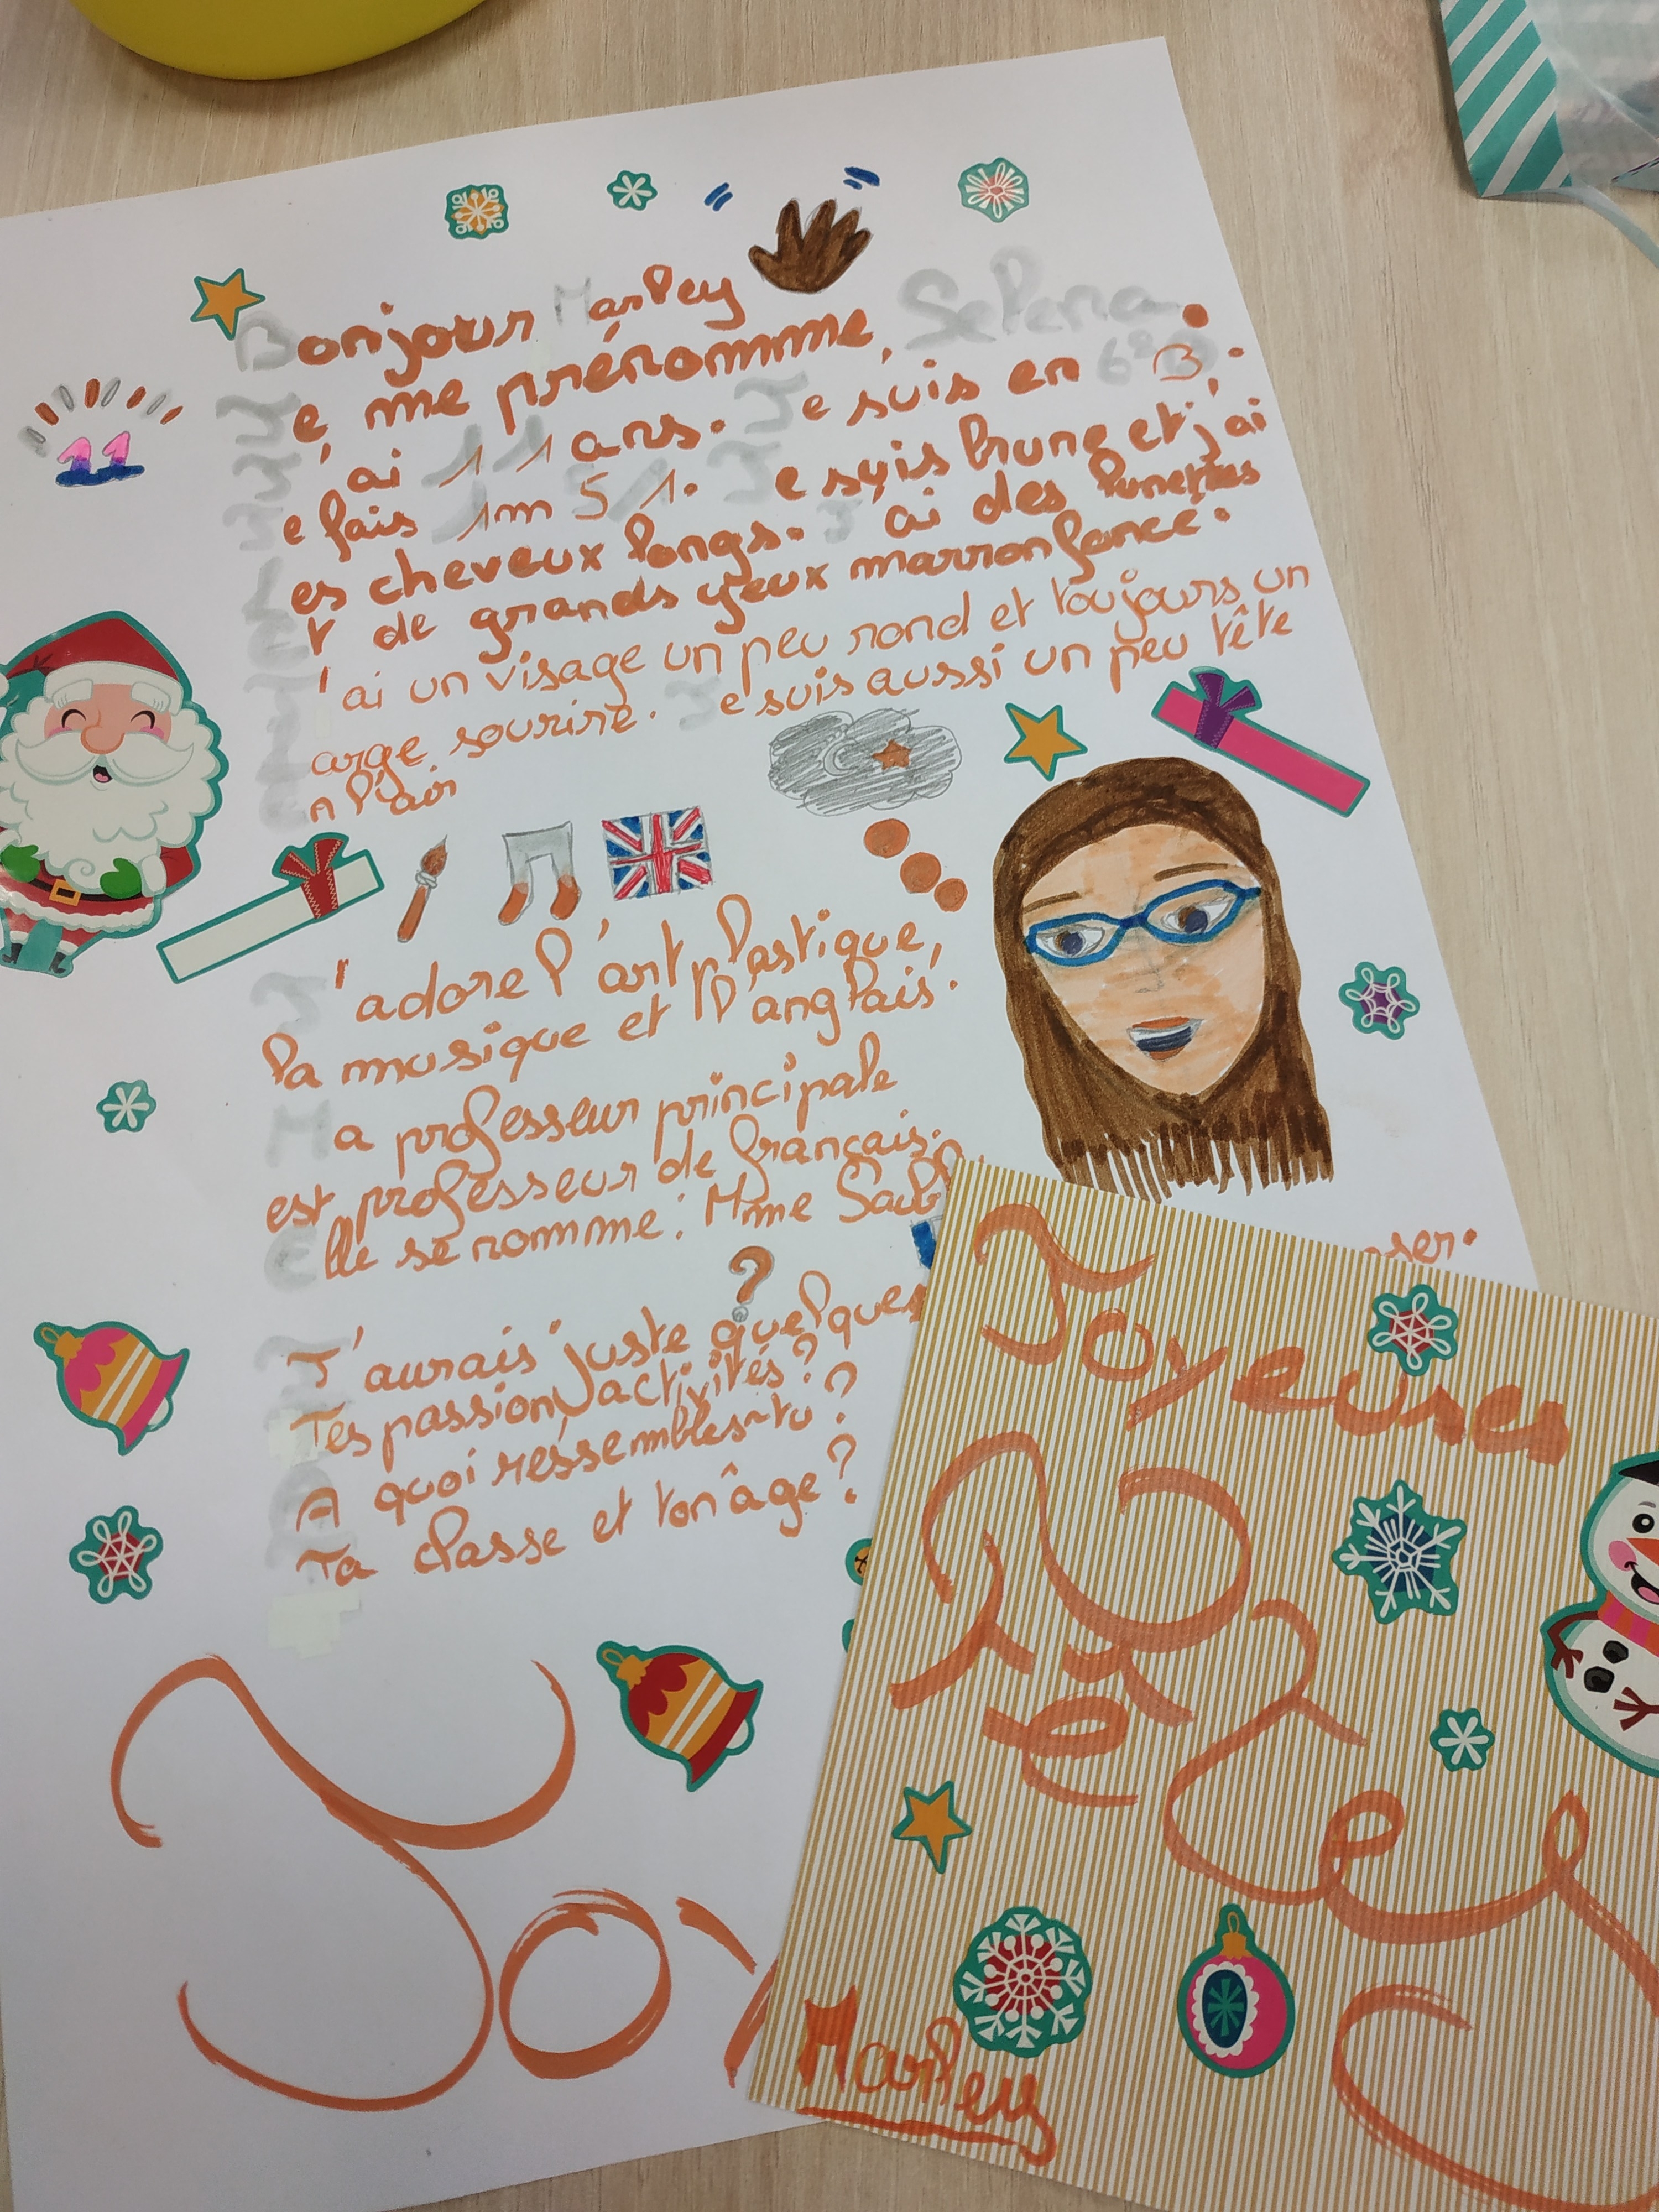 Bonjour Marley
Je me prénomme, Selena.
J'ai 11 ans. Je suis en 6e B.
Je fais 1m 51. Je suis brune et j'ai
les cheveux longs. J'ai des lunettes
et de grands yeux marron foncé.
J'ai un visage un peu rond et toujours un
large sourire. Je suis aussi un peu tête
en l'air
11
J'adore l'art plastique,
la musique et l'anglais.
Ma professeur principale
est professeur de français.
Elle se nomme : Mme
?
J'aurais juste quelques
Tes passion, activités ?
A quoi ressembles-tu ?
Ta classe et ton âge ?
Joy
Joyeuses
Marley